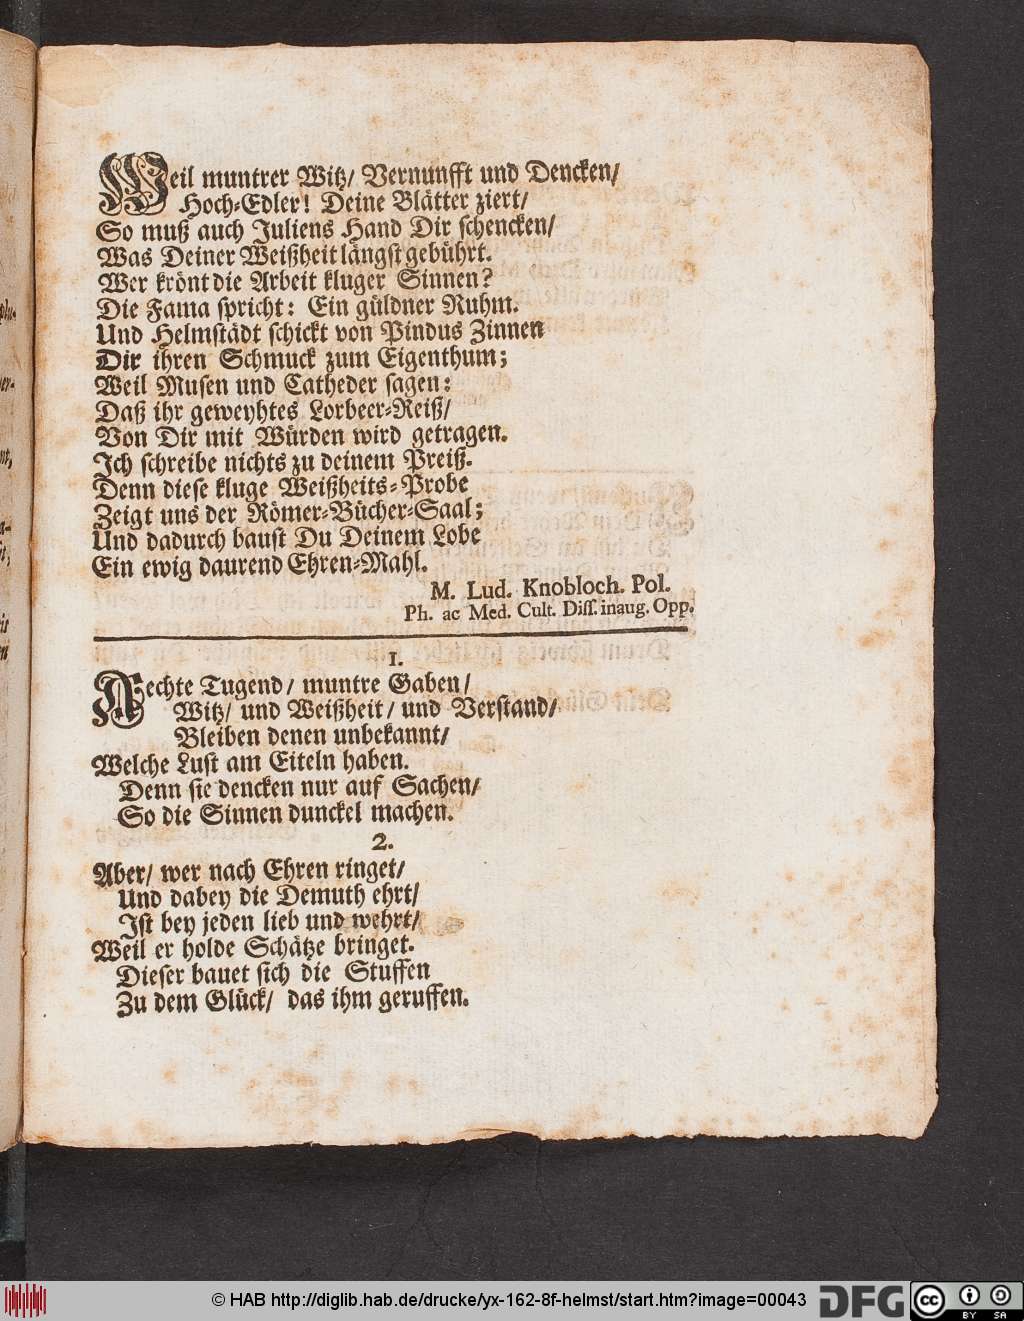 Weil muntrer Witz/ Vernunfft und Dencken/
Hoch-Edler! Deine Blätter ziert/
So muß auch Juliens Hand Dir schencken/
Was Deiner Weißheit längst gebührt.
Wer krönt die Arbeit kluger Sinnen?
Die Fama spricht: Ein güldner Ruhm.
Und Helmstädt schickt von Pindus Zinnen
Dir ihren Schmuck zum Eigenthum;
Weil Musen und Catheder sagen:
Daß ihr geweyhtes Lorbeer-Reiß/
Von Dir mit Würden wird getragen.
Ich schreibe nichts zu deinem Preiß.
Denn diese kluge Weißheits-Probe
Zeigt uns der Römer-Bücher-Saal;
Und dadurch baust Du Deinem Lobe
Ein ewig daurend Ehren-Mahl.
M. Lud. Knobloch. Pol.
Ph. ac Med. Cult. Diss. inaug. Opp.
1.
Aechte Tugend/ muntre Gaben/
Witz/ und Weißheit/ und Verstand/
Bleiben denen unbekannt/
Welche Lust am Eiteln haben.
Denn sie dencken nur auf Sachen/
So die Sinnen dunckel machen.
2.
Aber/ wer nach Ehren ringet/
Und dabey die Demuth ehrt/
Ist bey jeden lieb und wehrt/
Weil er holde Schätze bringet.
Dieser bauet sich die Stuffen
Zu dem Glück/ das ihm geruffen.
© HAB http://diglib.hab.de/drucke/yx-162-8f-helmst/start.htm?image=00043
DFG
cc BY SA